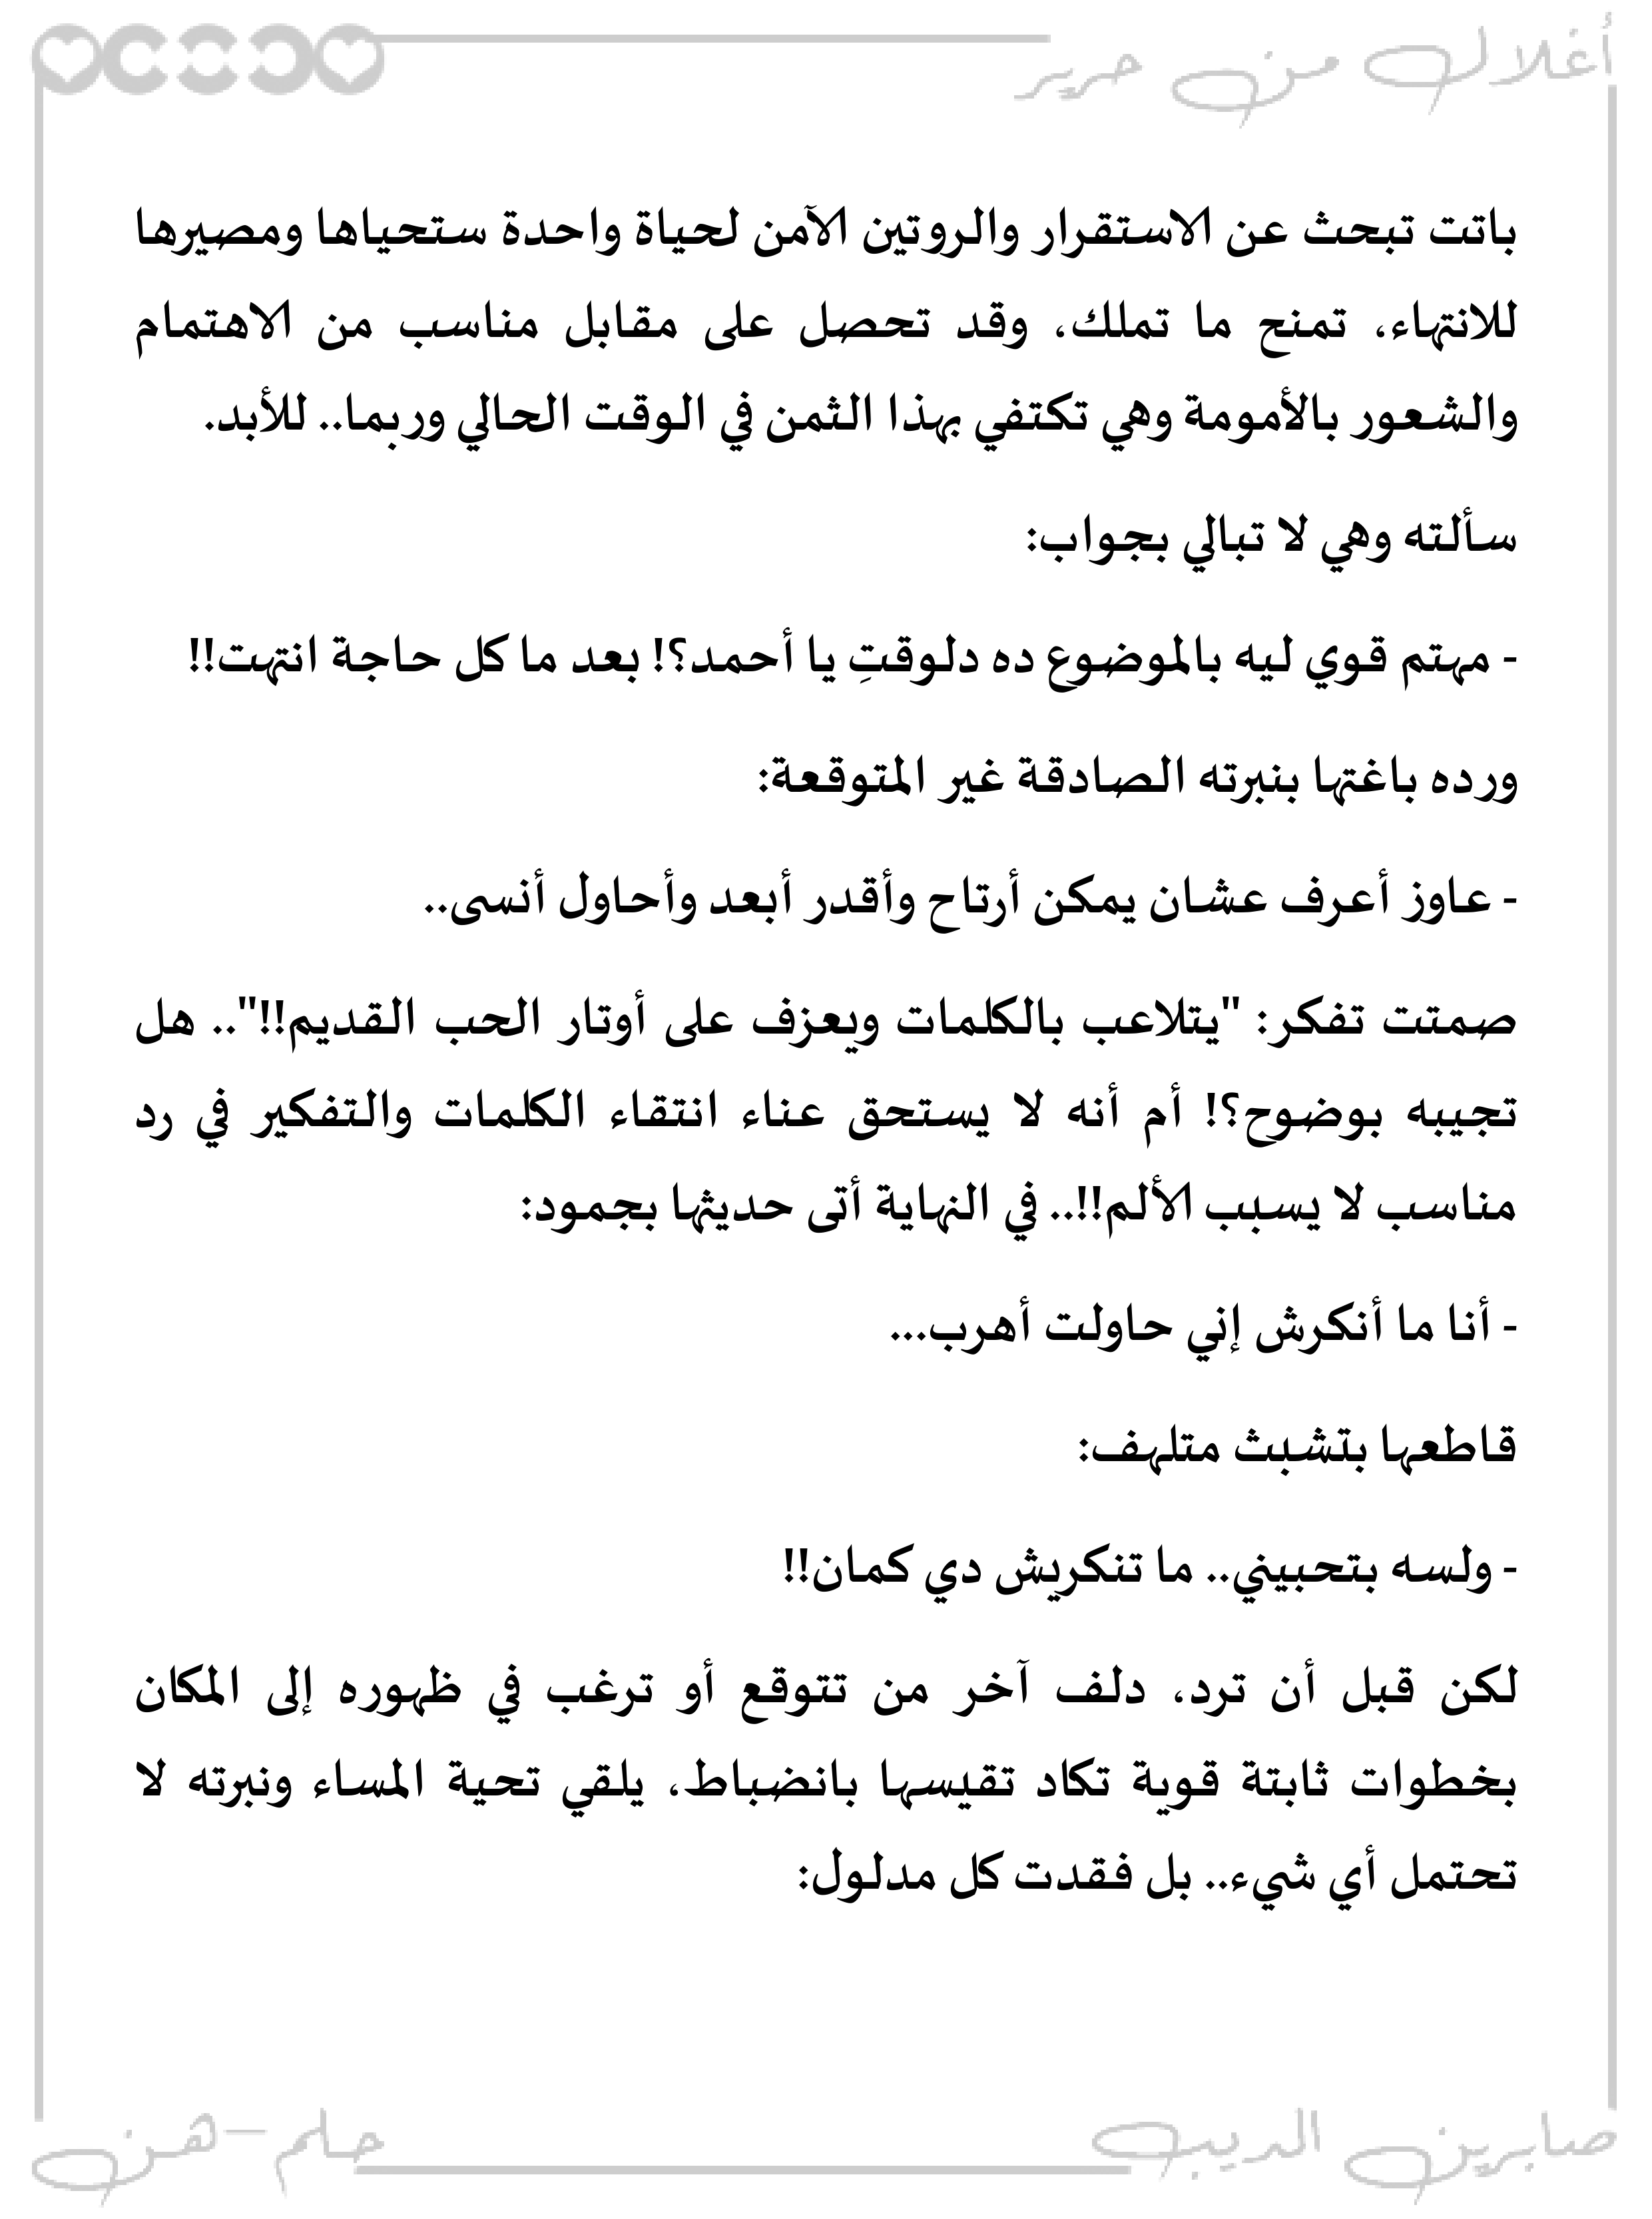 أغلال من حرير
باتت تبحث عن الاستقرار والروتين الآمن لحياة واحدة ستحياها ومصيرها
للانتهاء، تمنح ما تملك، وقد تحصل على مقابل مناسب من الاهتمام
والشعور بالأمومة وهي تكتفي بهذا الثمن في الوقت الحالي وربما.. للأبد.
سألته وهي لا تبالي بجواب:
- مهتم قوي ليه بالموضوع ده دلوقتِ يا أحمد؟! بعد ما كل حاجة انتهت!!
ورده باغتها بنبرته الصادقة غير المتوقعة:
- عاوز أعرف عشان يمكن أرتاح وأقدر أبعد وأحاول أنسى..
صمتت تفكر: "يتلاعب بالكلمات ويعزف على أوتار الحب القديم!!".. هل
تجيبه بوضوح؟! أم أنه لا يستحق عناء انتقاء الكلمات والتفكير في رد
مناسب لا يسبب الألم!!.. في النهاية أتى حديثها بجمود:
- أنا ما أنكرش إني حاولت أهرب...
قاطعها بتشبث متلهف:
- ولسه بتحبيني.. ما تنكريش دي كمان!!
لكن قبل أن ترد، دلف آخر من تتوقع أو ترغب في ظهوره إلى المكان
بخطوات ثابتة قوية تكاد تقيسها بانضباط، يلقي تحية المساء ونبرته لا
تحتمل أي شيء.. بل فقدت كل مدلول:
صابرين الديب
حلم-هن